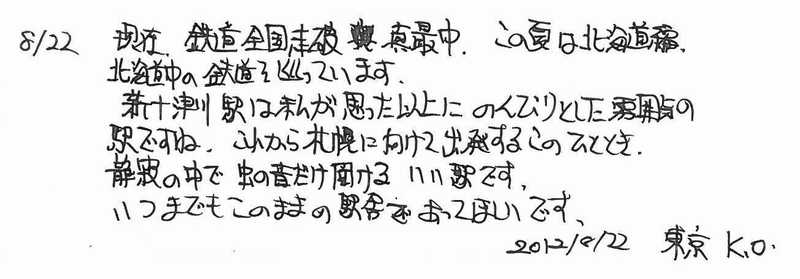 8/22 現在、鉄道全国走破 真最中。この夏は北海道編。
北海道中の鉄道を巡っています。
新十津川駅は私が思った以上にのんびりとした雰囲気の
駅ですね。これから札幌に向けて出発するこのひととき。
静寂の中で虫の音だけ聞ける いい駅です。
いつまでもこのままの駅舎であってほしいです。
2012/8/22 東京 K.O.